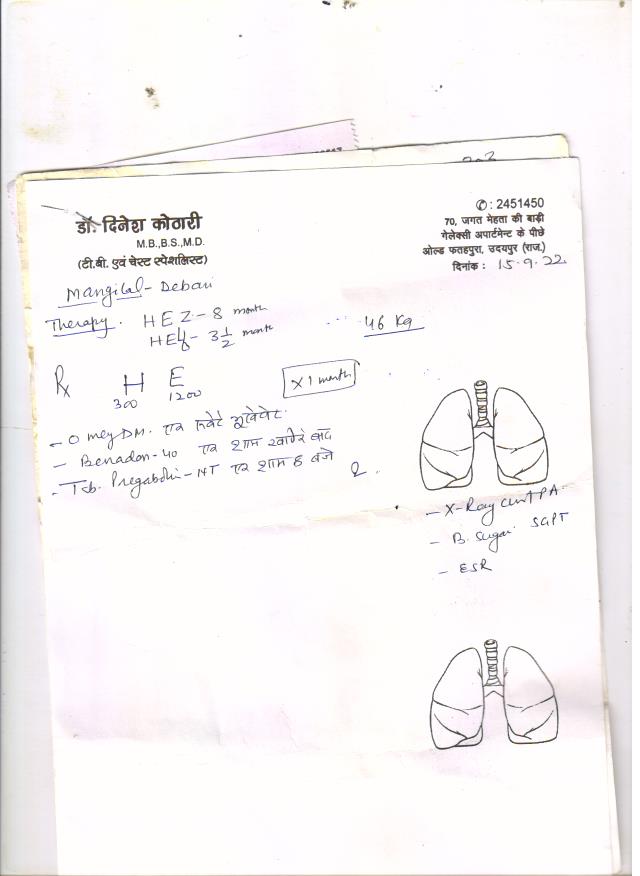 डॉ. दिनेश कोठारी
M.B.,B.S.,M.D.
(टी.बी. एवं चेस्ट स्पेशलिस्ट)
✆: 2451450
70, जगत मेहता की बाड़ी
गेलेक्सी अपार्टमेन्ट के पीछे
ओल्ड फतहपुरा, उदयपुर (राज.)
दिनांक : 15.9.22
Mangilal - Debari
Therapy. HEZ - 8 month
3 1/2 month
46 Kg
Rx H E × 1 month
300 1200
- Omey DM. एक
- Benadon-40 एक शाम खाने के बाद
- Tab. Pregabdin-NT एक शाम 8 बजे
- X-Ray Chest PA
- B. Sugar SGPT
- ESR